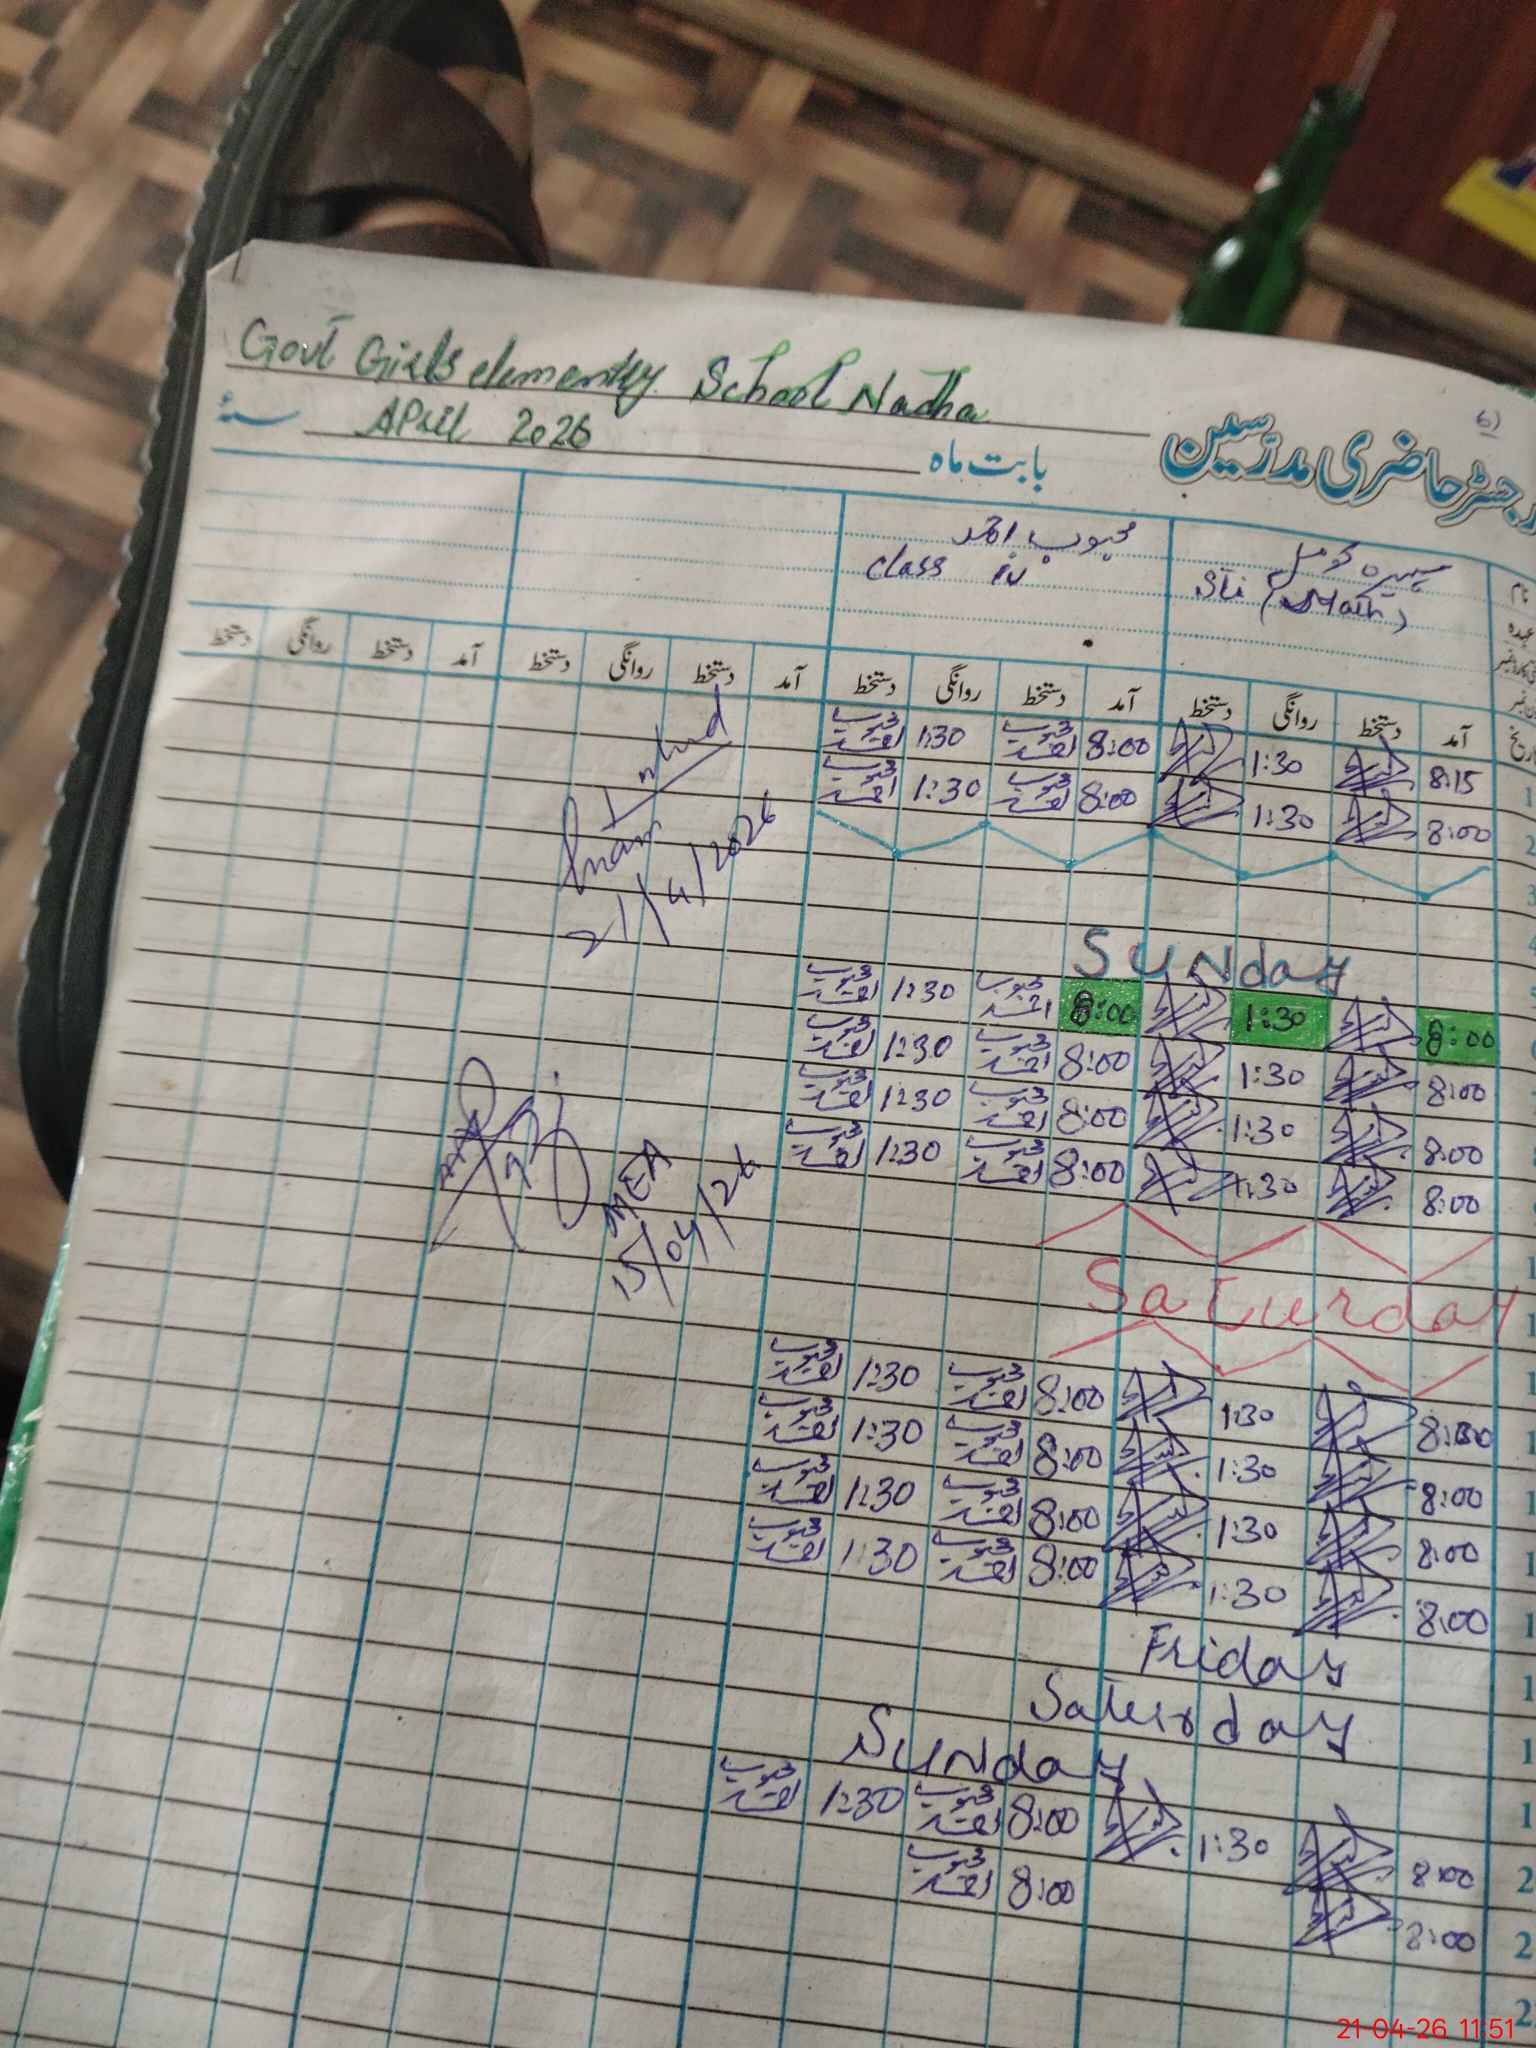 Govt Girls elementry School Nadha
رجسٹر حاضری مدرسین
بابت ماہ April 2026 سنہ
محبوب احمد
class iv
Sti (Math)
نام
عہدہ
آمد دستخط روانگی دستخط آمد دستخط روانگی دستخط آمد دستخط روانگی دستخط آمد دستخط روانگی دستخط
8:15 1:30 8:00 محبوب احمد 1:30 محبوب احمد
8:00 1:30 8:00 محبوب احمد 1:30 محبوب احمد
21/4/2026
SUNday
8:00 1:30 8:00 محبوب احمد 1:30 محبوب احمد
8:00 1:30 8:00 محبوب احمد 1:30 محبوب احمد
8:00 1:30 8:00 محبوب احمد 1:30 محبوب احمد
8:00 1:30 8:00 محبوب احمد 1:30 محبوب احمد
MEA
15/04/26
Saturday
8:00 1:30 8:00 محبوب احمد 1:30 محبوب احمد
8:00 1:30 8:00 محبوب احمد 1:30 محبوب احمد
8:00 1:30 8:00 محبوب احمد 1:30 محبوب احمد
8:00 1:30 8:00 محبوب احمد 1:30 محبوب احمد
Friday
Saturday
SUNday
8:00 1:30 8:00 محبوب احمد 1:30 محبوب احمد
8:00 8:00 محبوب احمد
21-04-26 11:51